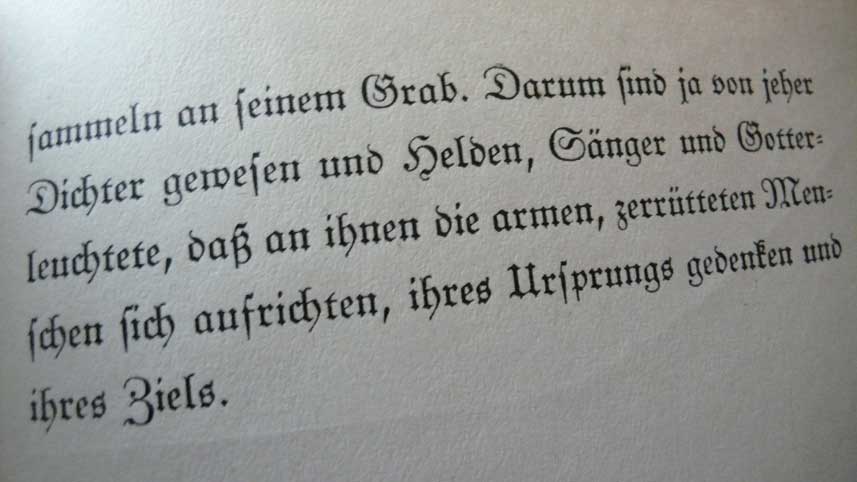 sammeln an seinem Grab. Darum sind ja von jeher
Dichter gewesen und Helden, Sänger und Gotter-
leuchtete, daß an ihnen die armen, zerrütteten Men-
schen sich aufrichten, ihres Ursprungs gedenken und
ihres Ziels.